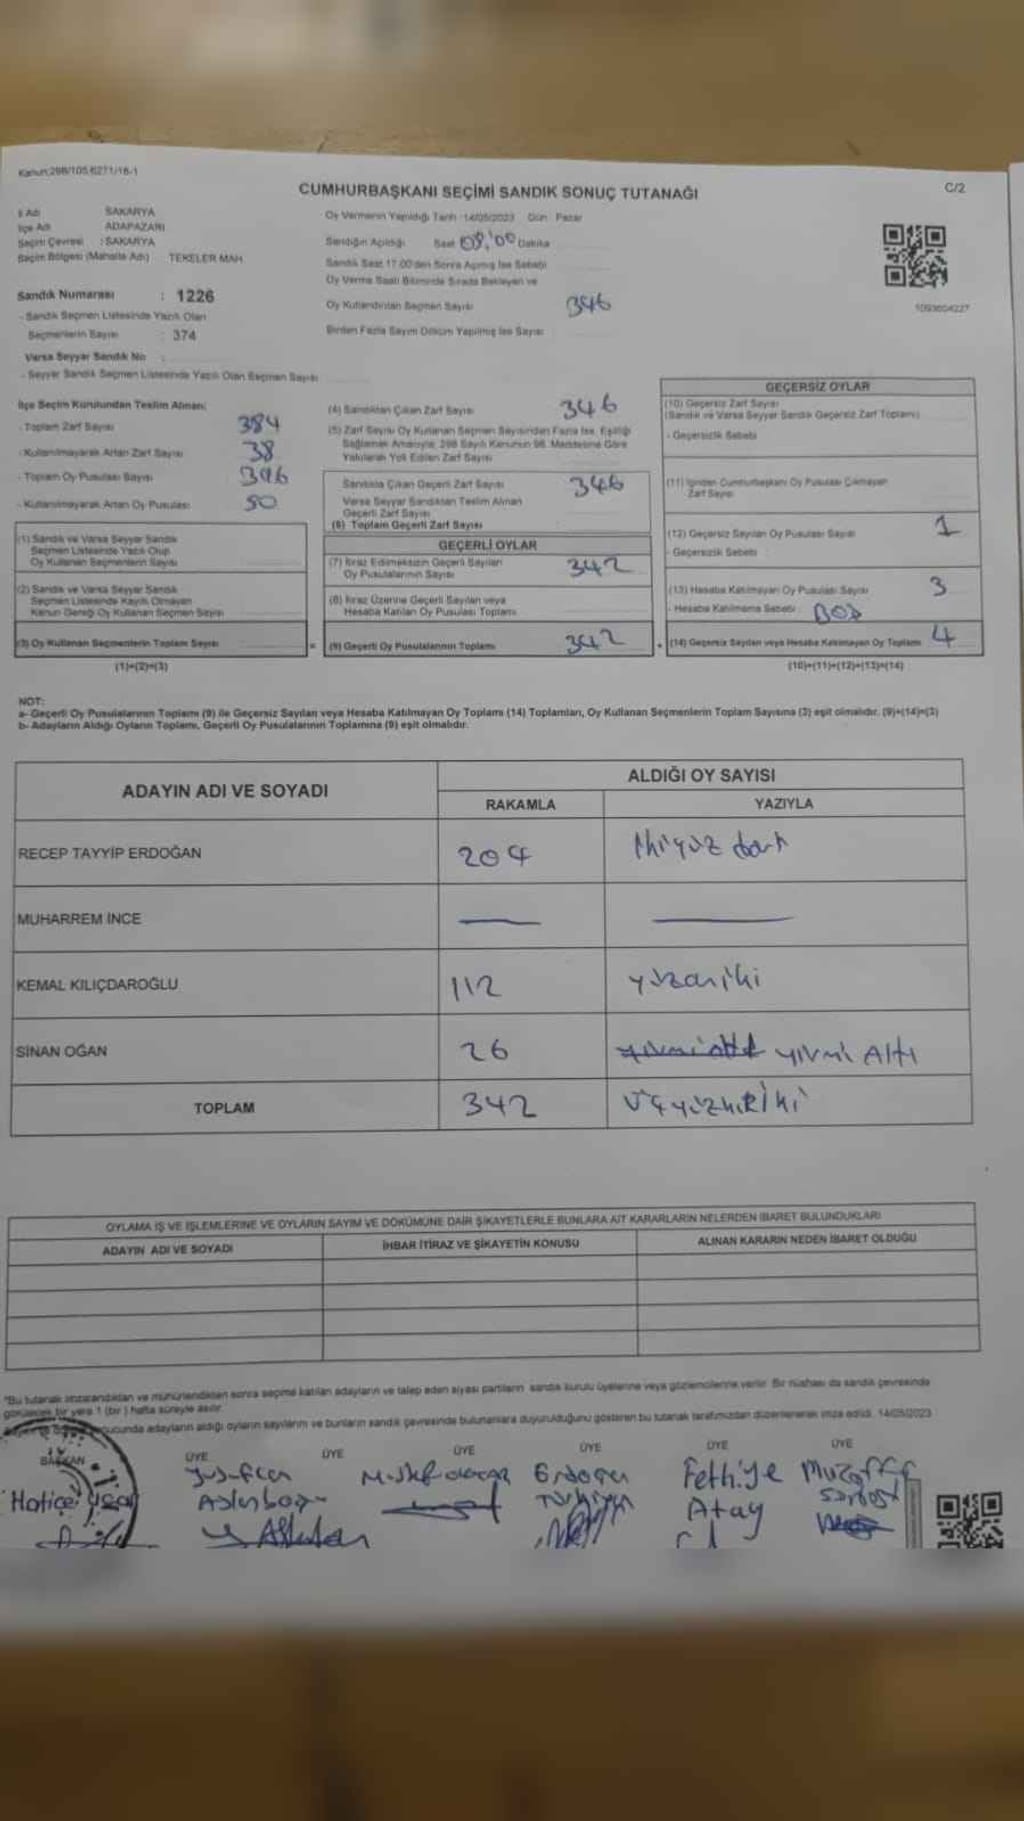 Kanun:298/105 6271/16-1
CUMHURBAŞKANI SEÇİMİ SANDIK SONUÇ TUTANAĞI
C/2
İl Adı SAKARYA
İlçe Adı ADAPAZARI
Seçim Çevresi : SAKARYA
Seçim Bölgesi (Mahalle Adı) TEKELER MAH.
Sandık Numarası : 1226
- Sandık Seçmen Listesinde Yazılı Olan
Seçmenlerin Sayısı : 374
Varsa Seyyar Sandık No :
- Seyyar Sandık Seçmen Listesinde Yazılı Olan Seçmen Sayısı
Oy Vermenin Yapıldığı Tarih : 14/05/2023 Gün : Pazar
Sandığın Açıldığı Saat 08:00 Dakika
Sandık Saat 17.00'den Sonra Açılmış İse Sebebi
Oy Verme Saati Bitiminde Sırada Bekleyen ve
Oy Kullandırılan Seçmen Sayısı 346
Birden Fazla Sayım Döküm Yapılmış İse Sayısı
1093604227
İlçe Seçim Kurulundan Teslim Alınan:
- Toplam Zarf Sayısı 384
- Kullanılmayarak Artan Zarf Sayısı 38
- Toplam Oy Pusulası Sayısı 396
- Kullanılmayarak Artan Oy Pusulası 50
(1) Sandık ve Varsa Seyyar Sandık
Seçmen Listesinde Yazılı Olup
Oy Kullanan Seçmenlerin Sayısı
(2) Sandık ve Varsa Seyyar Sandık
Seçmen Listesinde Kayıtlı Olmayan
Kanun Gereği Oy Kullanan Seçmen Sayısı
(3) Oy Kullanan Seçmenlerin Toplam Sayısı
(1)+(2)=(3)
(4) Sandıktan Çıkan Zarf Sayısı 346
(5) Zarf Sayısı Oy Kullanan Seçmen Sayısından Fazla İse, Eşitliği
Sağlamak Amacıyla, 298 Sayılı Kanunun 98. Maddesine Göre
Yakılarak Yok Edilen Zarf Sayısı
Sandıkta Çıkan Geçerli Zarf Sayısı 346
Varsa Seyyar Sandıktan Teslim Alınan
Geçerli Zarf Sayısı
(6) Toplam Geçerli Zarf Sayısı
GEÇERLİ OYLAR
(7) İtiraz Edilmeksizin Geçerli Sayılan
Oy Pusulalarının Sayısı 342
(8) İtiraz Üzerine Geçerli Sayılan veya
Hesaba Katılan Oy Pusulası Toplamı
= (9) Geçerli Oy Pusulalarının Toplamı 342
GEÇERSİZ OYLAR
(10) Geçersiz Zarf Sayısı
(Sandık ve Varsa Seyyar Sandık Geçersiz Zarf Toplamı)
- Geçersizlik Sebebi
(11) İçinden Cumhurbaşkanı Oy Pusulası Çıkmayan
Zarf Sayısı
(12) Geçersiz Sayılan Oy Pusulası Sayısı 1
- Geçersizlik Sebebi
(13) Hesaba Katılmayan Oy Pusulası Sayısı 3
- Hesaba Katılmama Sebebi Boş
+ (14) Geçersiz Sayılan veya Hesaba Katılmayan Oy Toplamı 4
(10)+(11)+(12)+(13)=(14)
NOT:
a- Geçerli Oy Pusulalarının Toplamı (9) ile Geçersiz Sayılan veya Hesaba Katılmayan Oy Toplamı (14) Toplamları, Oy Kullanan Seçmenlerin Toplam Sayısına (3) eşit olmalıdır. (9)+(14)=(3)
b- Adayların Aldığı Oyların Toplamı, Geçerli Oy Pusulalarının Toplamına (9) eşit olmalıdır.
ADAYIN ADI VE SOYADI
ALDIĞI OY SAYISI
RAKAMLA YAZIYLA
RECEP TAYYİP ERDOĞAN 204 ikiyüz dört
MUHARREM İNCE
KEMAL KILIÇDAROĞLU 112 yüzoniki
SİNAN OĞAN 26 yirmi Altı
TOPLAM 342 üçyüzkırkiki
OYLAMA İŞ VE İŞLEMLERİNE VE OYLARIN SAYIM VE DÖKÜMÜNE DAİR ŞİKAYETLERLE BUNLARA AİT KARARLARIN NELERDEN İBARET BULUNDUKLARI
ADAYIN ADI VE SOYADI İHBAR İTİRAZ VE ŞİKAYETİN KONUSU ALINAN KARARIN NEDEN İBARET OLDUĞU
"Bu tutanak imzalandıktan ve mühürlendikten sonra seçime katılan adayların ve talep eden siyasi partilerin sandık kurulu üyelerine veya gözlemcilerine verilir. Bir nüshası da sandık çevresinde
görülecek bir yere 1 (bir) hafta süreyle asılır.
sonucunda adayların aldığı oyların sayılarını ve bunların sandık çevresinde bulunanlara duyurulduğunu gösteren bu tutanak tarafımızdan düzenlenerek imza edildi. 14/05/2023
BAŞKAN ÜYE ÜYE ÜYE ÜYE ÜYE ÜYE
Hatice Yusuf Can Erdoğan Fethiye Muzaffer
Atay